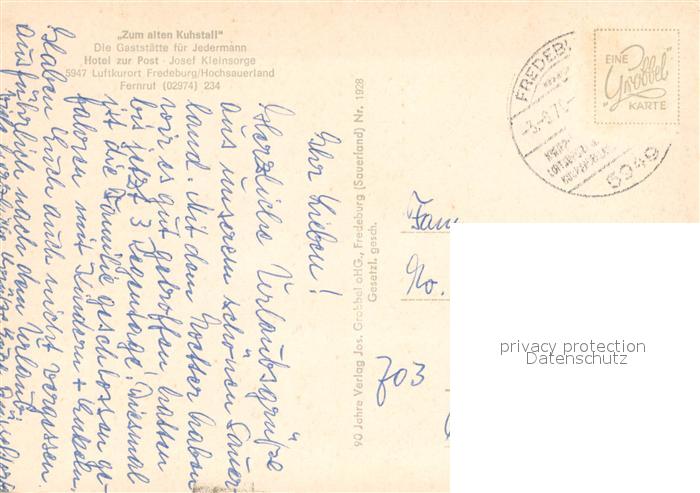 „Zum alten Kuhstall"
Die Gaststätte für Jedermann
Hotel zur Post · Josef Kleinsorge
5947 Luftkurort Fredeburg/Hochsauerland
Fernruf (02974) 234
Ihr Lieben!
Herzliche Urlaubsgrüße
aus unserem schönen Sauer-
land. Mit dem Wetter haben
wir es gut getroffen, hatten
bis jetzt 3 Regentage! Diesmal
ist die Familie geschlossen ge-
fahren mit Kindern + Enkeln.
Haben Euch auch nicht vergessen.
ausführlich nach dem Urlaub
90 Jahre Verlag Jos. Grobbel oHG., Fredeburg (Sauerland) Nr. 1928
Gesetzl. gesch.
FREDEB
-3.-8.70-
5949
EINE
"Grobbel"
KARTE
Fam
No.
703
privacy protection
Datenschutz